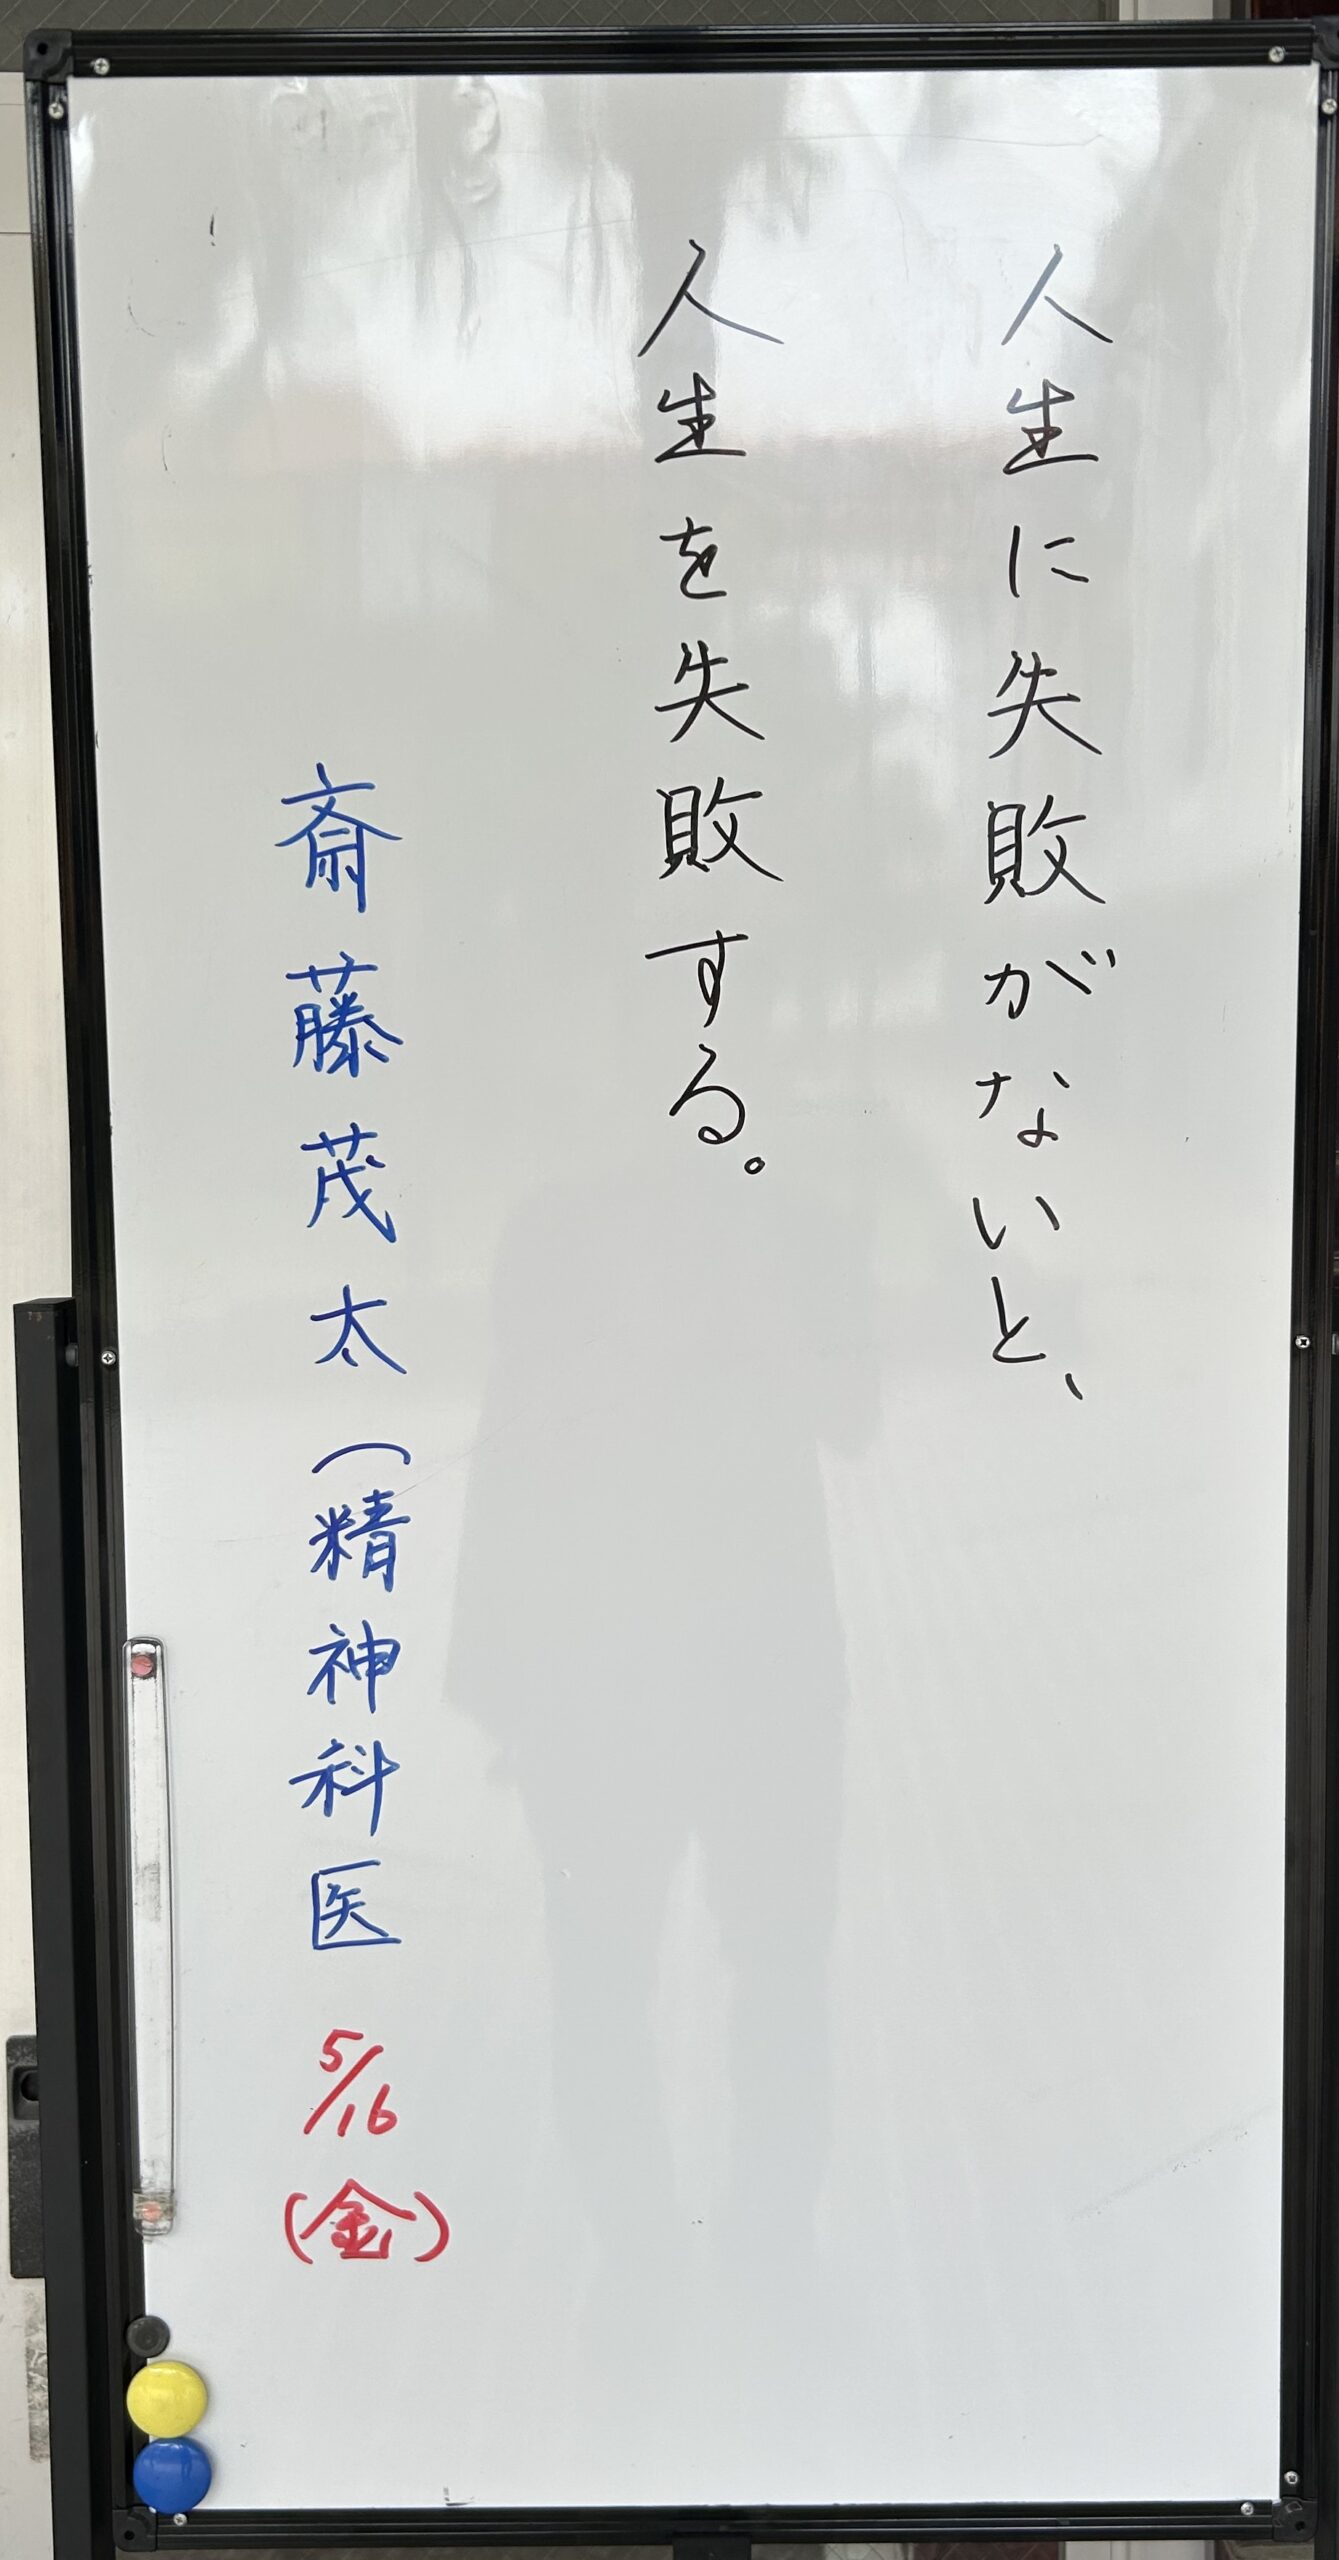 人生に失敗がないと、
人生を失敗する。
斎藤茂太(精神科医 5/16
(金)